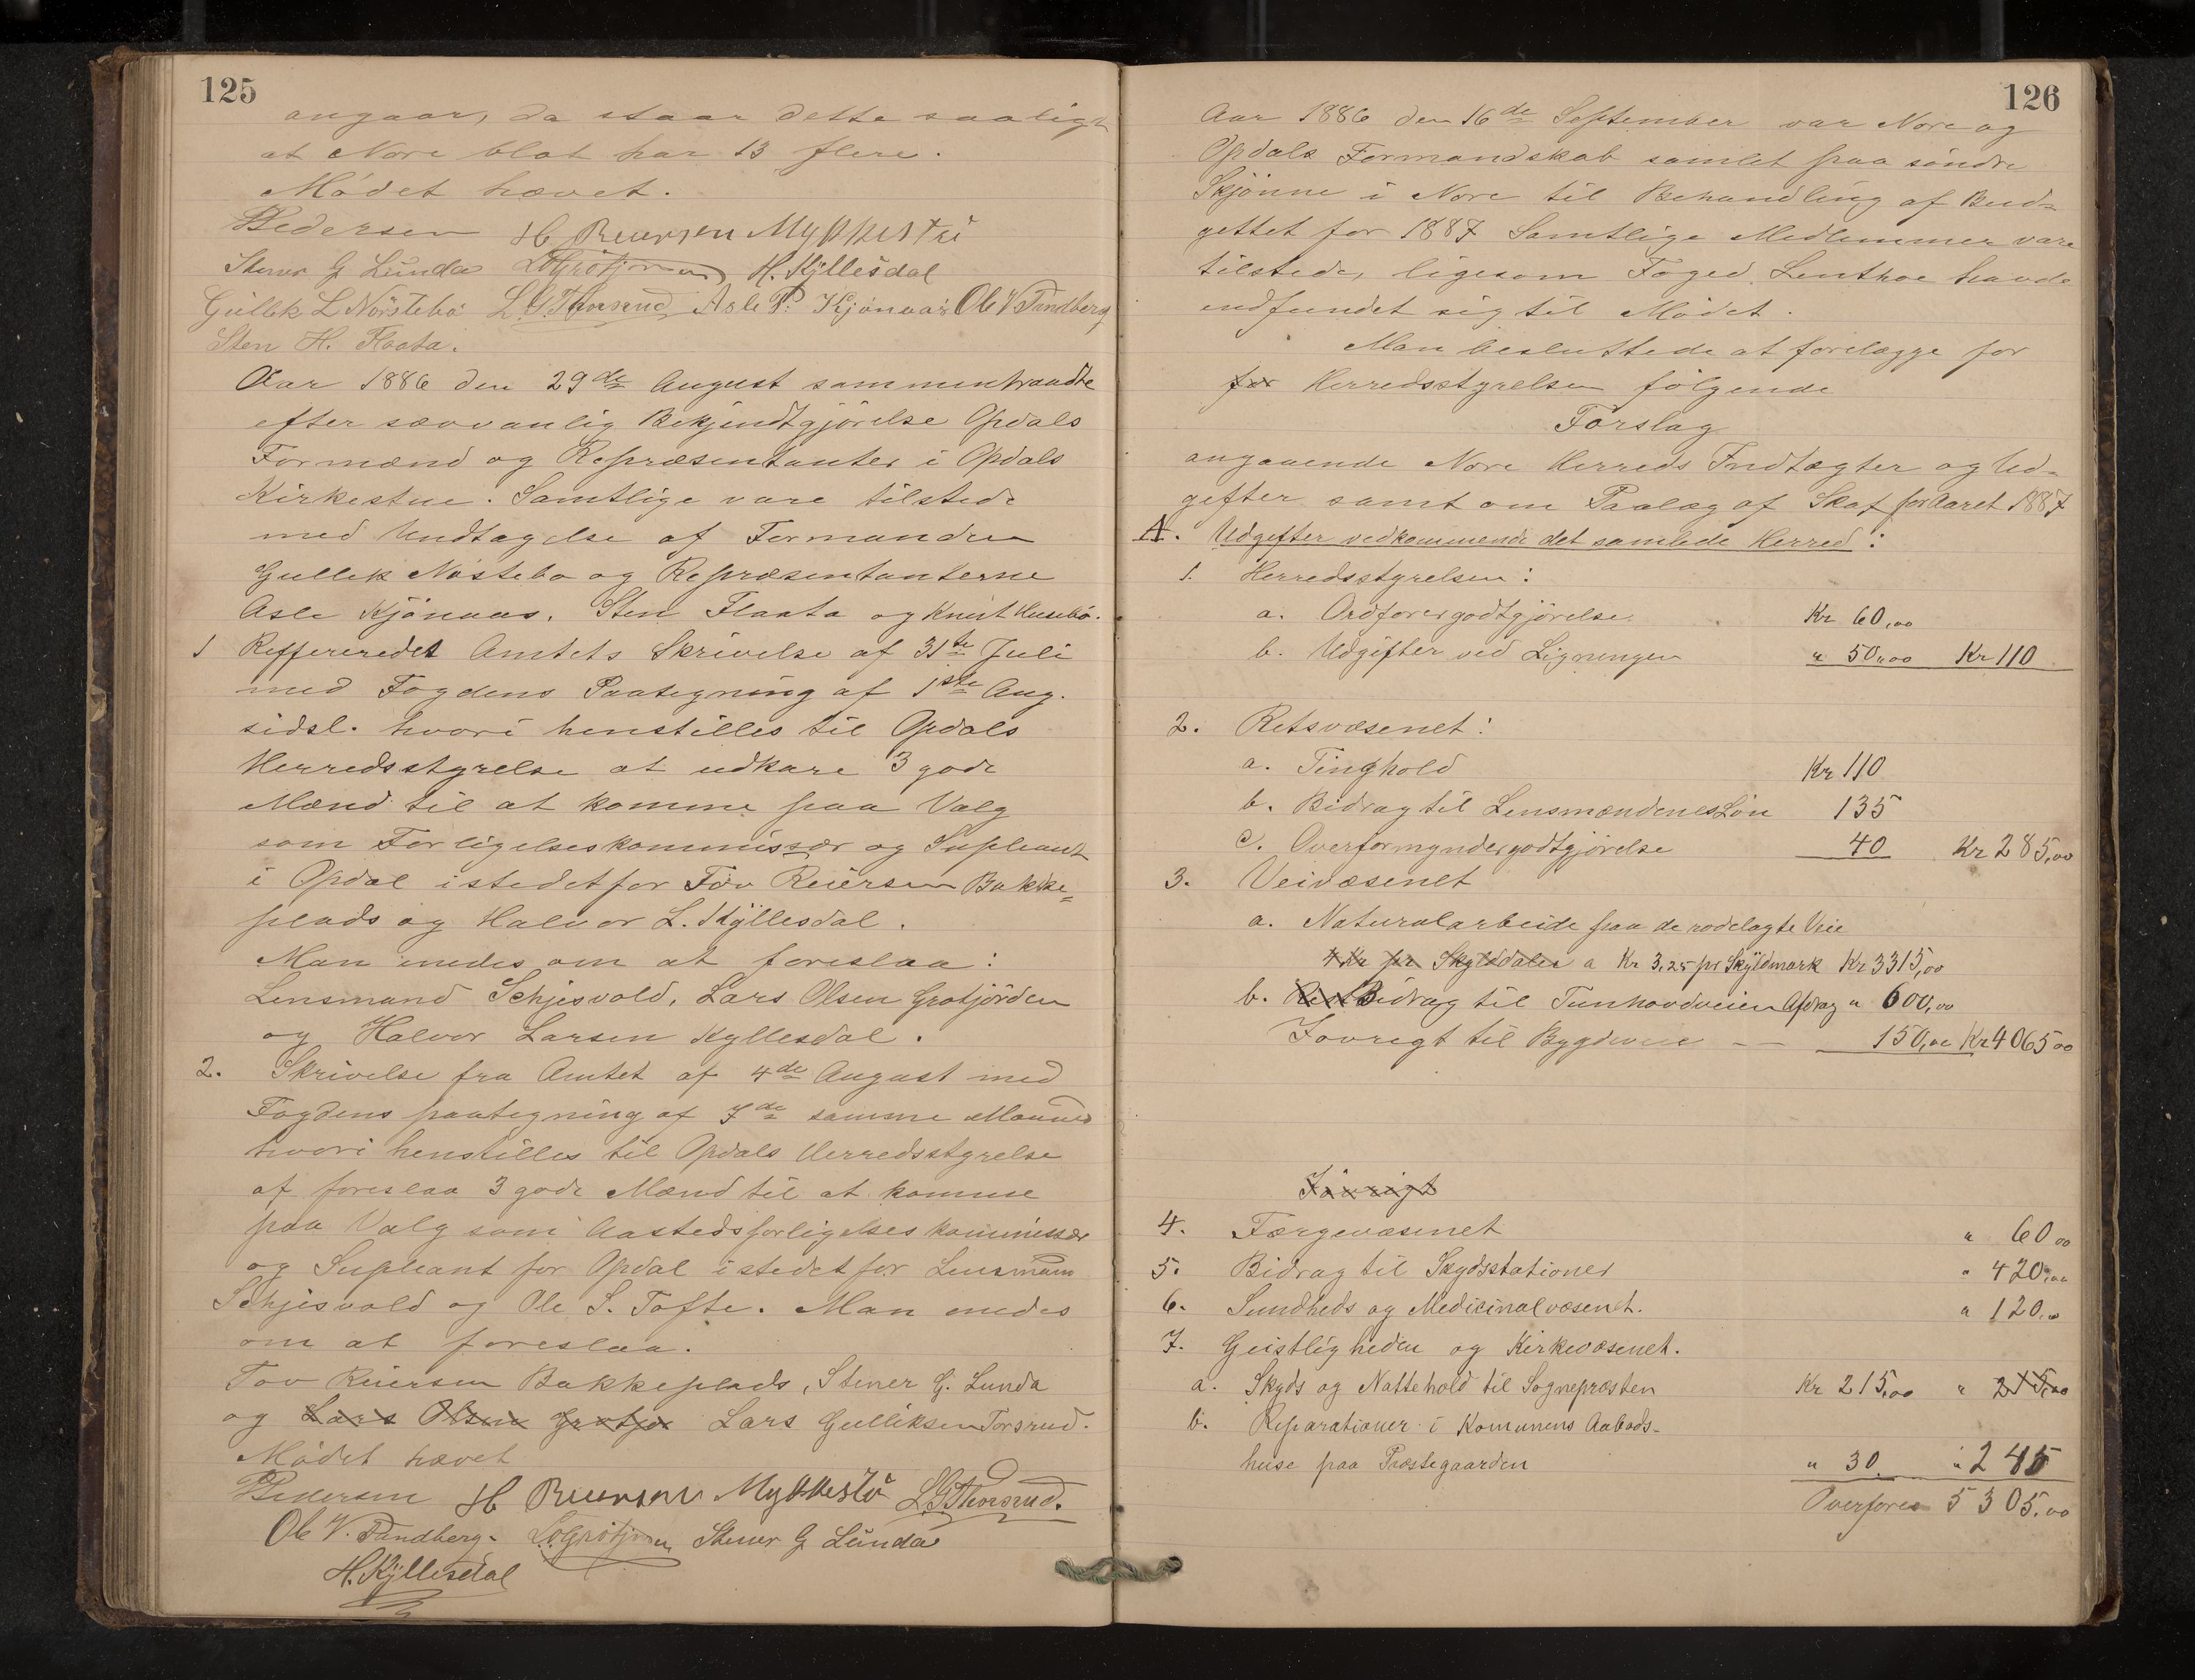 125
angaar, da staar dette saaligt
at Nore blot har 13 flere.
Mödet hævet.
Pedersen H Reiersen Mykkestu
Stener G Lunda H. Kÿllesdal
Gullek L Nörstebö L.G. Thorsrud Asle P. Kjönaas Ole V Tandberg
Sten H. Flaata.
Aar 1886 den 29de August sammentraadte
efter sædvanlig Bekjendtgjörelse Opdals
Formænd og Repræsentanter i Opdals
Kirkestue. Samtlige vare tilstede
med Undtagelse af Formanden
Gullek Nöstebö og Repræsentanterne
Asle Kjönaas, Sten Flaata og Knut Husebö.
1 Reffereredet Amtets Skrivelse af 31te Juli
med Fogdens Paategning af 1ste Aug.
sidsl. hvori henstilles til Opdals
Herredsstyrelse at udkare 3 gode
Mænd til at komme paa Valg
som Forligelseskommissær og Supleant
i Opdal istedetfor Tov Reiersen Bakke=
plads og Halvor L. Kÿllesdal.
Man enedes om at foreslaa:
Lensmand Schjesvold, Lars Olsen Grotjörden
og Halvor Larsen Kyllesdal.
2. Skrivelse fra Amtet af 4de August med
Fogdens paategning af 7de samme Maaned
hvori henstilles til Opdals Herredsstyrelse
at foreslaa 3 gode Mænd til at komme
paa Valg som Aastedsforligelseskommissær
og Supleant for Opdal istedetfor Lensmann
Schjesvold og Ole S. Tofte. Man enedes
om at foreslaa.
Tov Reiersen Bakkeplads, Stener G. Lunda
og Lars Olsen Grotjor Lars Gulliksen Torsrud.
Mödet hævet
Pedersen H Reiersen Mykkestu L.G. Thorsrud.
Ole V. Tandberg. Stener G Lunda
H. Kÿllesdal
126
Aar 1886 den 16de September var Nore og
Opdals Formandskab samlet paa söndre
Skjönne i Nore til Behandling af Bud=
gettet for 1887 Samtlige Medlemmer vare
tilstede, ligesom Foged Lenthoe havde
indfundet sig til Mödet.
Man besluttede at forelægge for
for Herredsstyrelsen fölgende
Forslag
angaaende Nore Herreds Indtægter og Ud=
gifter samt om Paalæg af Skat for Aaret 1887
A. Udgifter vedkommende det samlede Herred:
1. Herredsstyrelsen:
a. Ordförergodtgjörelse Kr 60,00
b. Udgifter ved Ligningen " 50,00 Kr 110
2. Retsvæsenet:
a. Tinghold Kr 110
b. Bidrag til Lensmændenes Lön 135
c. Overformyndergodtgjörelse 40 Kr 285,00
3. Veivæsenet
a. Naturalarbeide paa de rodelagte Veie
4 Kr pr Skylddaler a Kr 3,25 pr Skÿldmark Kr 3315,00
b. Rest Bidrag til Tunhovdveien Afdrag " 600,00
Iövrigt til Bygdeveie — — 150,00 Kr 4065 00
Iövrigt
4. Færgevæsenet " 60 00
5. Bidrag til Skydsstationer " 420,00
6. Sundheds og Medicinalvæsenet. " 120.00
7. Geistligheden og Kirkevæsenet.
a. Skyds og Nattehold til Sognepræsten Kr 215,00 " 215,00
b. Reparationer i Komunens Aabods-
huse paa Præstegaarden " 30 " 245
Overföres 5305,00